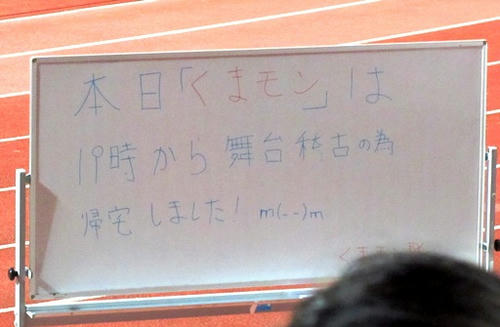 本日「くまモン」は
19時から舞台稽古の為
帰宅しました! m(--)m